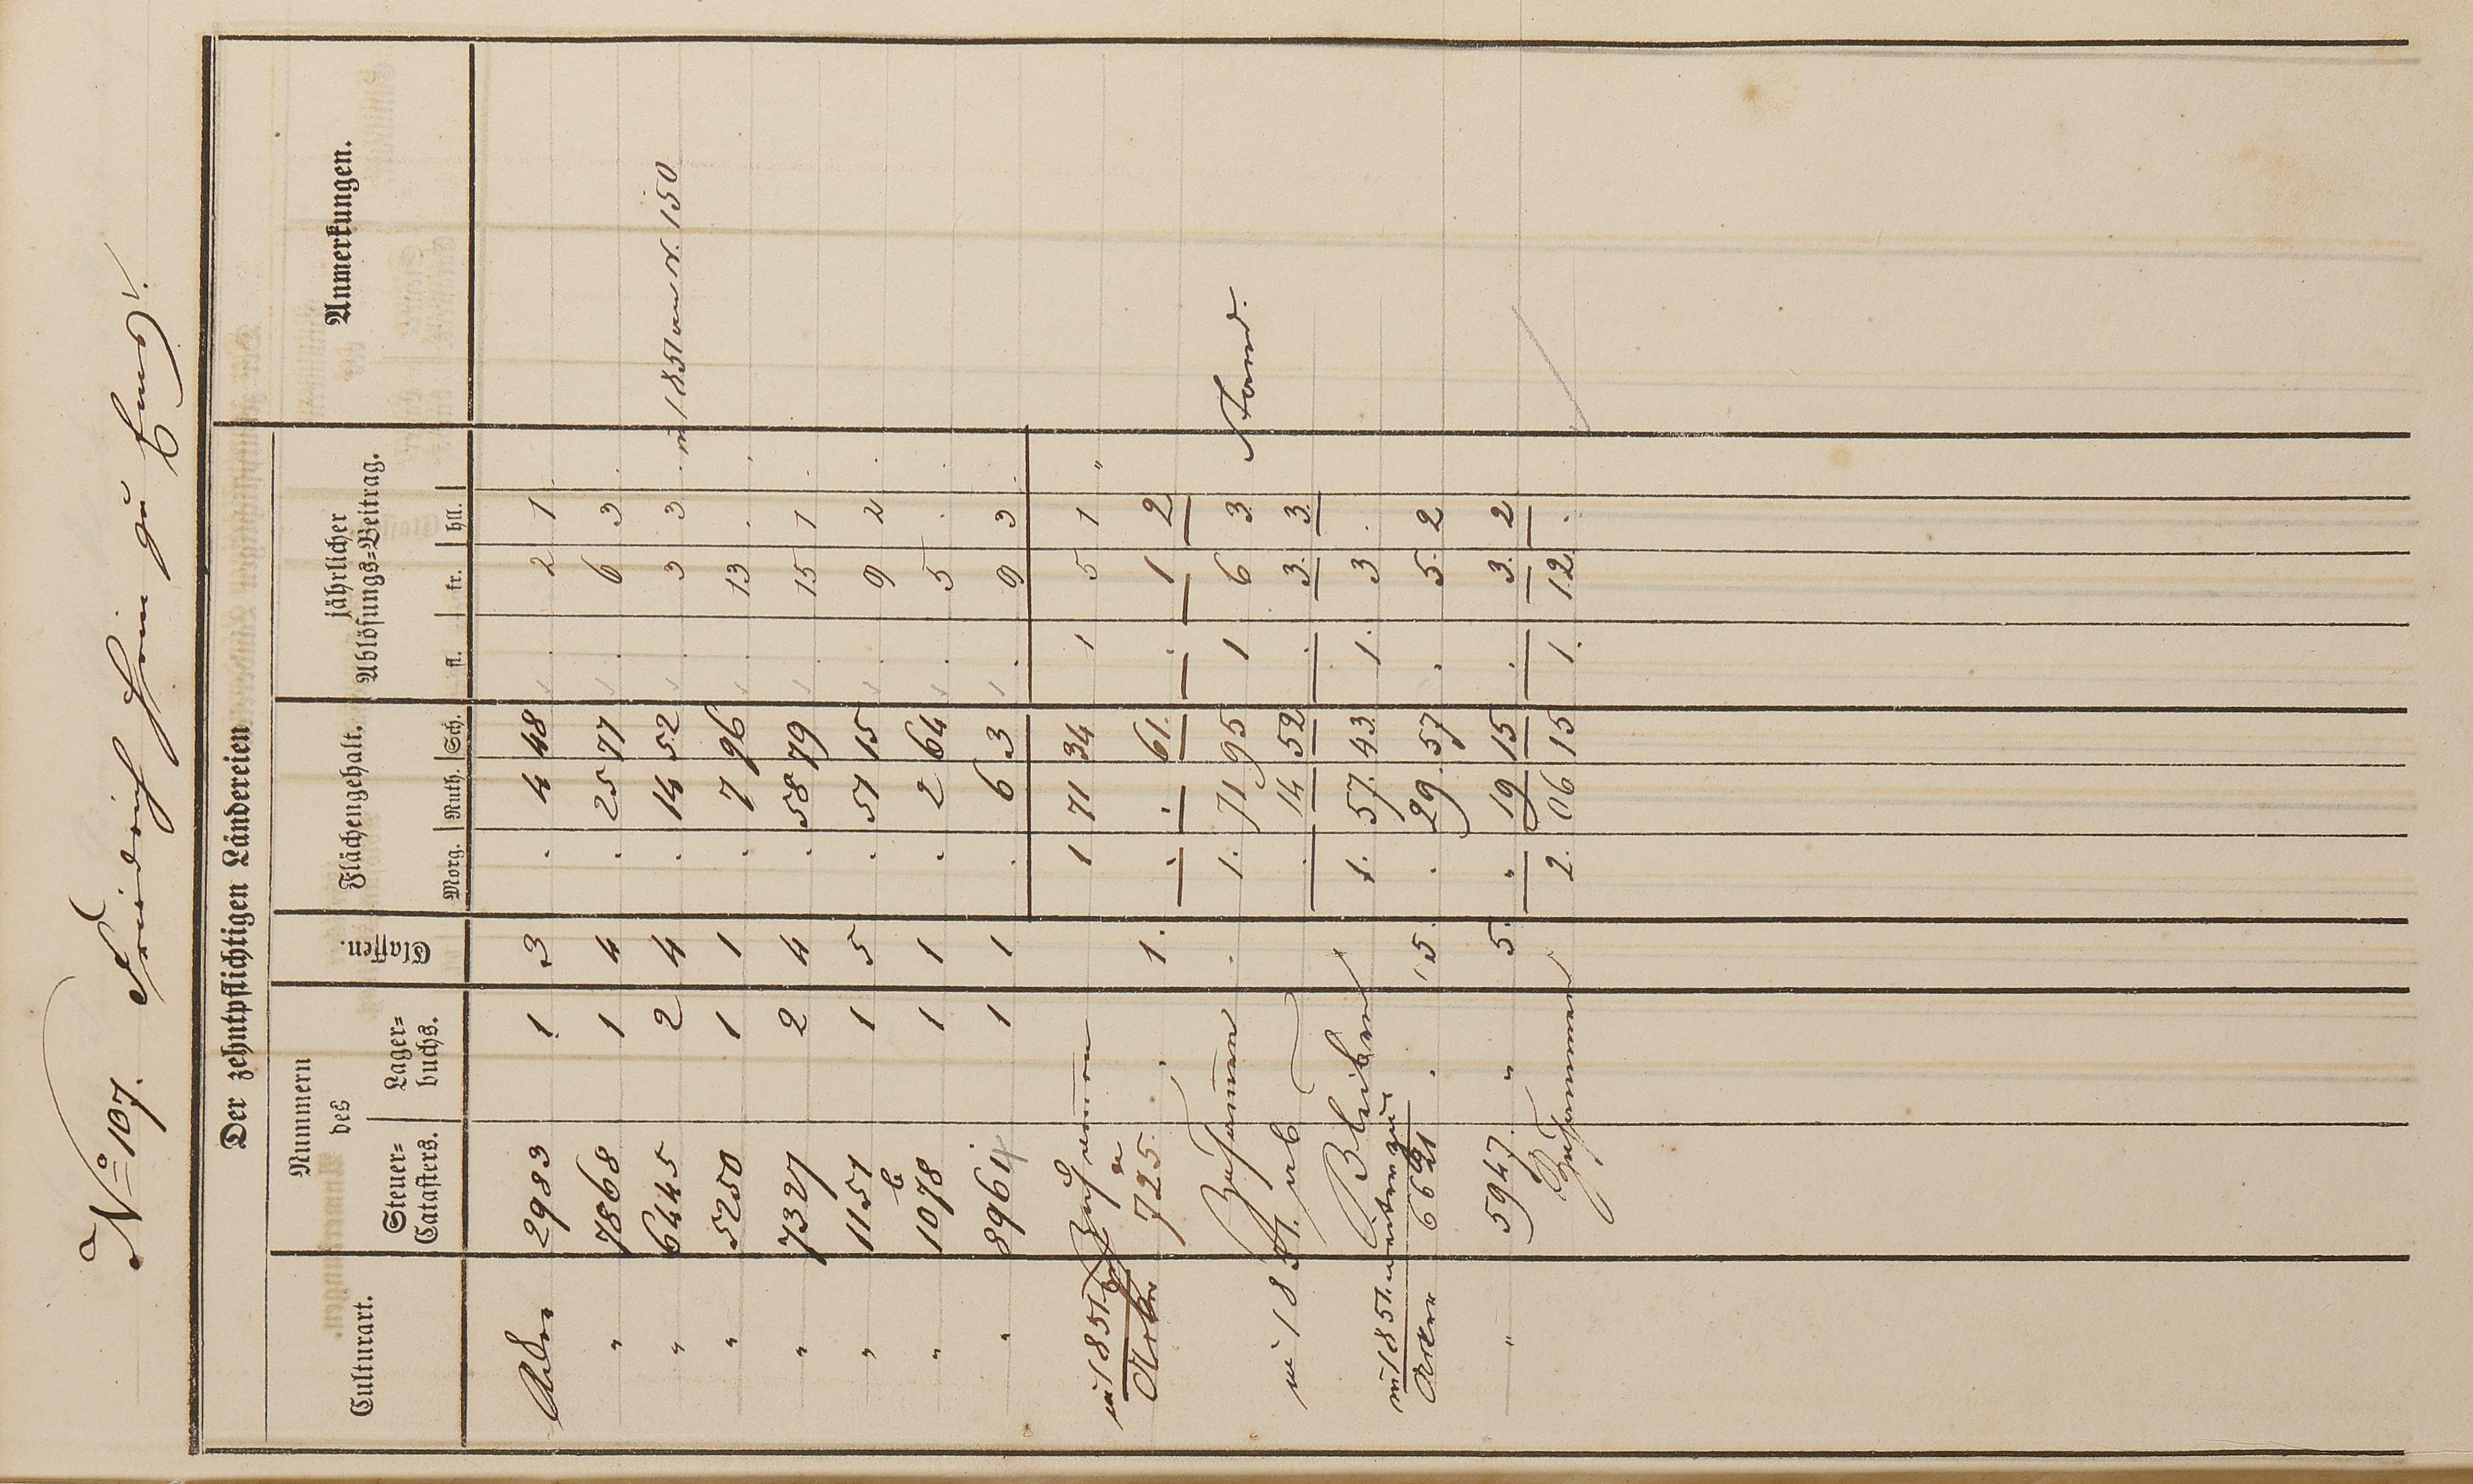 No 107. Friedrich Hein zu Ems.
Der zehntpflichtigen Ländereien
Culturart. Nummern des Classen. Flächengehalt. jährlicher Ablösungs=Beitrag. Anmerkungen.
Steuer=Catasters. Lager=buchs. Morg. Ruth. Sch. fl. kr. hll.
Acker 2983 1 3 . 4 48 . 2 1
" 7868 1 4 . 25 77 . 6 3
" 6445 2 4 . 14 52 . 3 3 in 1851 an N. 150
" 5250 1 1 . 7 96 . 13 .
" 7327 2 4 . 58 79 . 15 1
" 1151 1 5 . 51 15 . 9 2
" 1078 b 1 1 . 2 64 . 5 .
" 8964 1 1 . 6 3 . 9 3
Zusammen 1 71 34 1 5 1 "
in 1851
Acker 725 a . 1. . . 61. . 1 2
Zusammen 1. 71 95 1 6 3 Stand.
in 1851. ab . 14 52 . 3. 3.
Bleiben 1. 57. 43. 1. 3 .
in 1851. weiter zu
Acker 6621 . 5. . 29. 57 . 5. 2
" 5947. " 5. " 19 15 . 3. 2
Zusammen 2. 06 15 1. 12. .